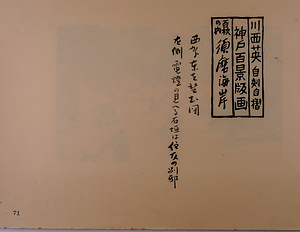 川西英 自刻自摺
神戸百景版画
百景の内 須磨海岸
西から東を望む図
左側電燈の見へる石垣は住友の別邸
71